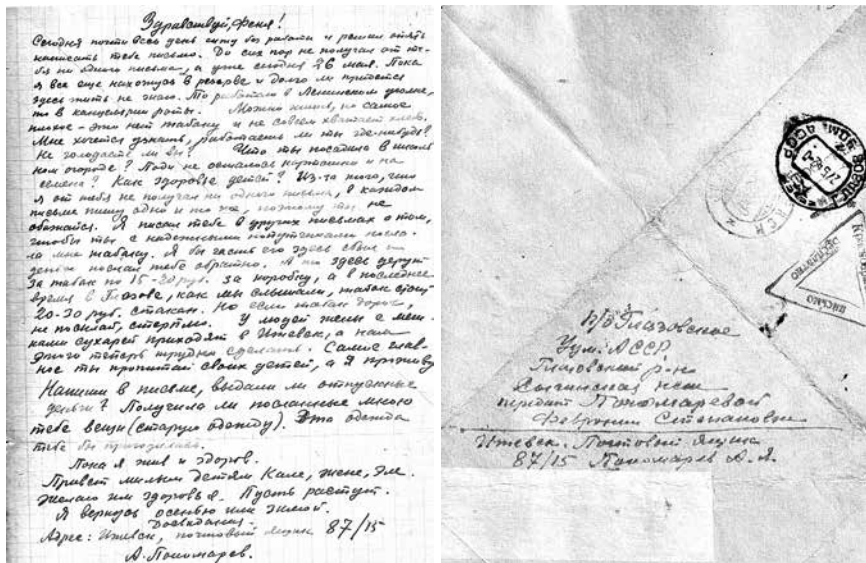 Здравствуй, Феня!
Сегодня почти весь день сижу без работы и решил опять
написать тебе письмо. До сих пор не получал от те-
бя ни одного письма, а уже сегодня 26 мая. Пока
я все еще нахожусь в резерве и долго ли придется
здесь жить не знаю. То работаю в Ленинском уголке,
то в канцелярии роты. Можно жить, но самое
плохое - это нет табаку и не совсем хватает хлеба.
Мне хочется узнать, работаешь ли ты где-нибудь?
Не голодаете ли вы? Что ты посадила в
ном огороде? Поди не осталось картошки и на
семена? Как здоровье детей? Из-за того, что
я от тебя не получал ни одного письма, в каждом
письме пишу одно и то же, поэтому ты не
обижайся. Я писал тебе в других письмах о том,
чтобы ты с надежными попутчиками посла-
ла мне табаку. Я бы часть его здесь сбыл и
деньги послал тебе обратно. А то здесь дерут
за табак по 15-20 руб. за коробку, а в последнее
время в Глазове, как мы слышали, табак стоит
20-30 руб. стакан. Но если табак дорог,
не посылай, стерплю. У людей жены с меш-
ками сухарей приходят в Ижевск, а нам
этого теперь трудно сделать. Самое глав-
ное ты пропитай своих детей, а я проживу
Напиши в письме, выдали ли отпускные
деньги? Получила ли посланные мною
тебе вещи (старую одежду). Эта одежда
тебе бы пригодилась.
Пока я жив и здоров.
Привет милым детям Кале, Жене, Эле.
Желаю им здоровья. Пусть растут.
Я вернусь осенью или зимой.
Досвидания.
Адрес: Ижевск, почтовый ящик 87/15
А. Пономарев.
п/о Глазовское
Удм. АССР
Глазовский р-н
нсш
передать Пономаревой
Февронии Степановне
Ижевск. Почтовый ящик
87/15 Пономарев А. Я.
БЕСПЛАТНО
ПИСЬМО